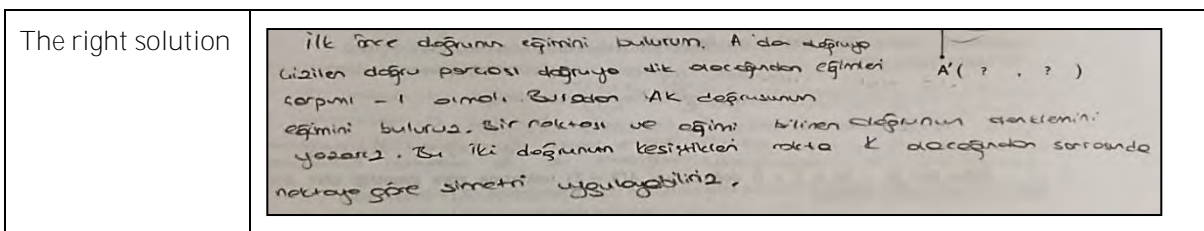 The right solution
İlk önce doğrunun eğimini bulurum. A'dan doğruya
çizilen doğru parçası doğruya dik olacağından eğimleri
A'( ? , ? )
çarpımı -1 olmalı. Buradan AK doğrusunun
eğimini buluruz. Bir noktası ve eğimi bilinen doğrunun denklemini
yazarız. Bu iki doğrunun kesiştikleri nokta K olacağından sonrasında
noktaya göre simetri uygulayabiliriz.